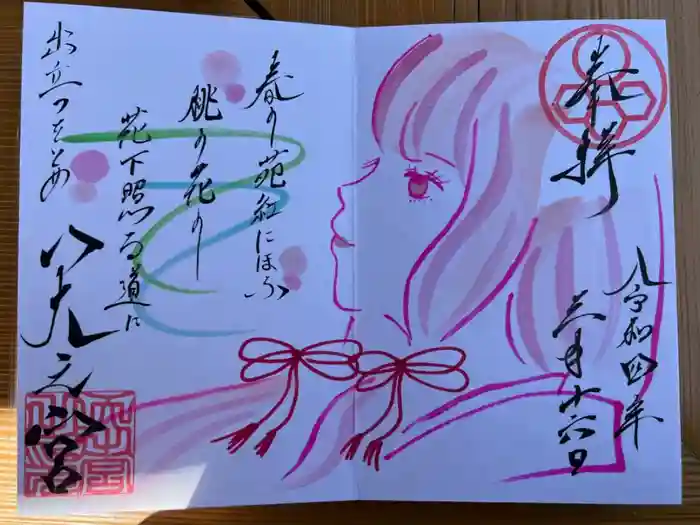 奉拝
令和四年
三月十六日
春の苑紅にほふ
桃の花の
花下照る道に
出立つをとめ
宮